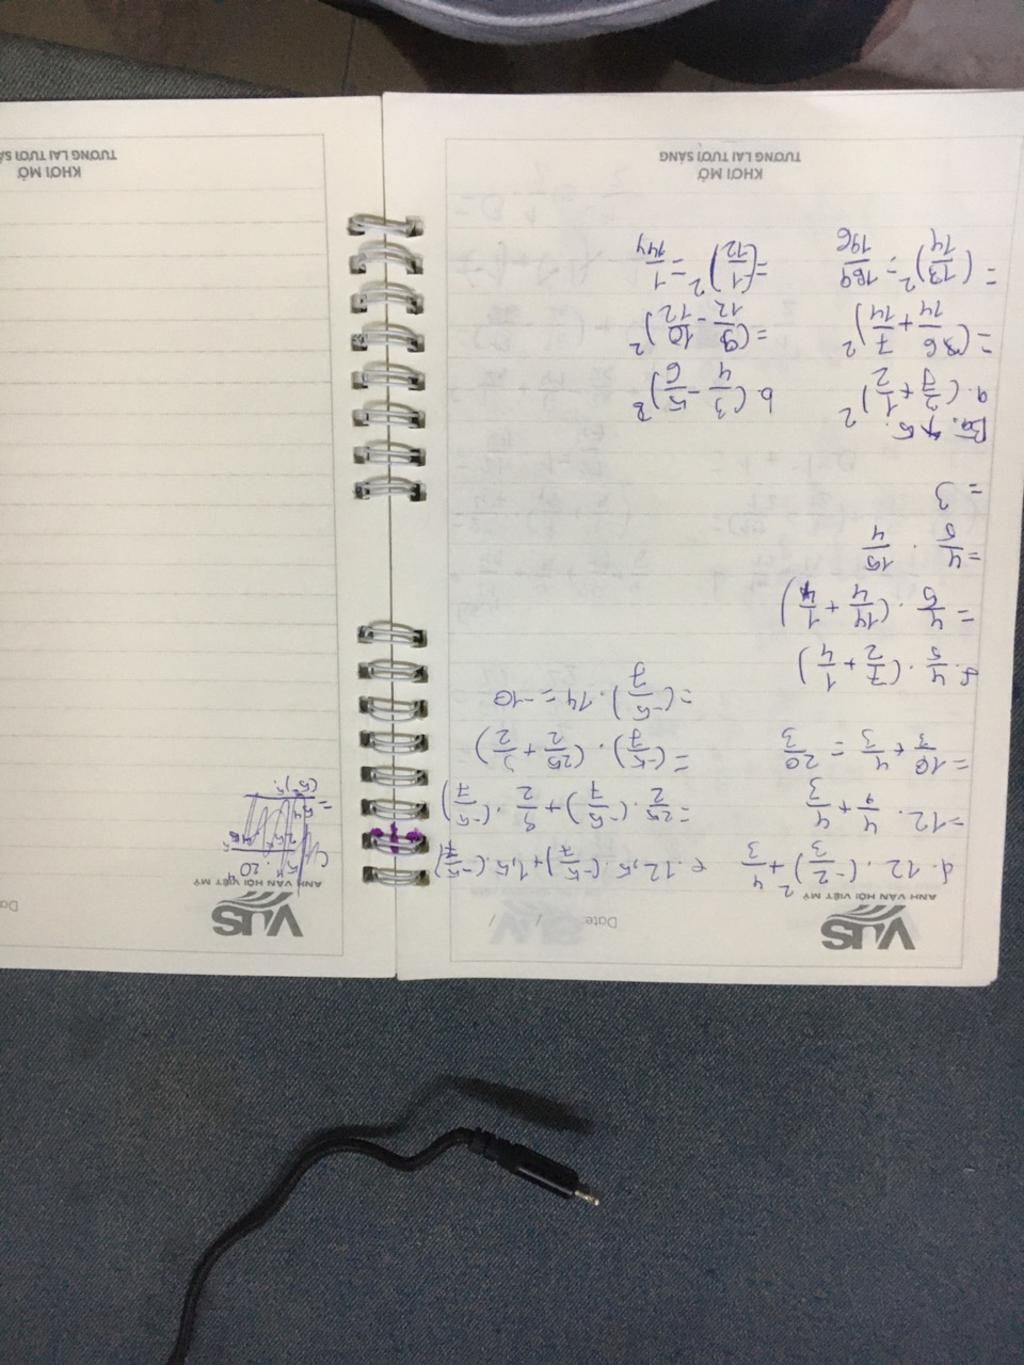 VUS
ANH VĂN HỘI VIỆT MỸ
Date / /
d. 12 . (-2/3)² + 4/3
= 12 . 4/9 + 4/3
= 16/3 + 4/3 = 20/3
e. 12,5 . (-5/7) + 1,5 . (-5/7)
= 25/2 . (-5/7) + 3/2 . (-5/7)
= (-5/7) . (25/2 + 3/2)
= (-5/7) . 14 = -10
f. 4/5 . (7/2 + 1/4)
= 4/5 . (14/4 + 1/4)
= 4/5 . 15/4
= 3
a. (3/7 + 1/2)²
= (6/14 + 7/14)²
= (13/14)² = 169/196
b. (3/4 - 5/6)²
= (9/12 - 10/12)²
= (-1/12)² = 1/144
KHƠI MỞ
TƯƠNG LAI TƯƠI SÁNG
VUS
ANH VĂN HỘI VIỆT MỸ
KHƠI MỞ
TƯƠNG LAI TƯƠI